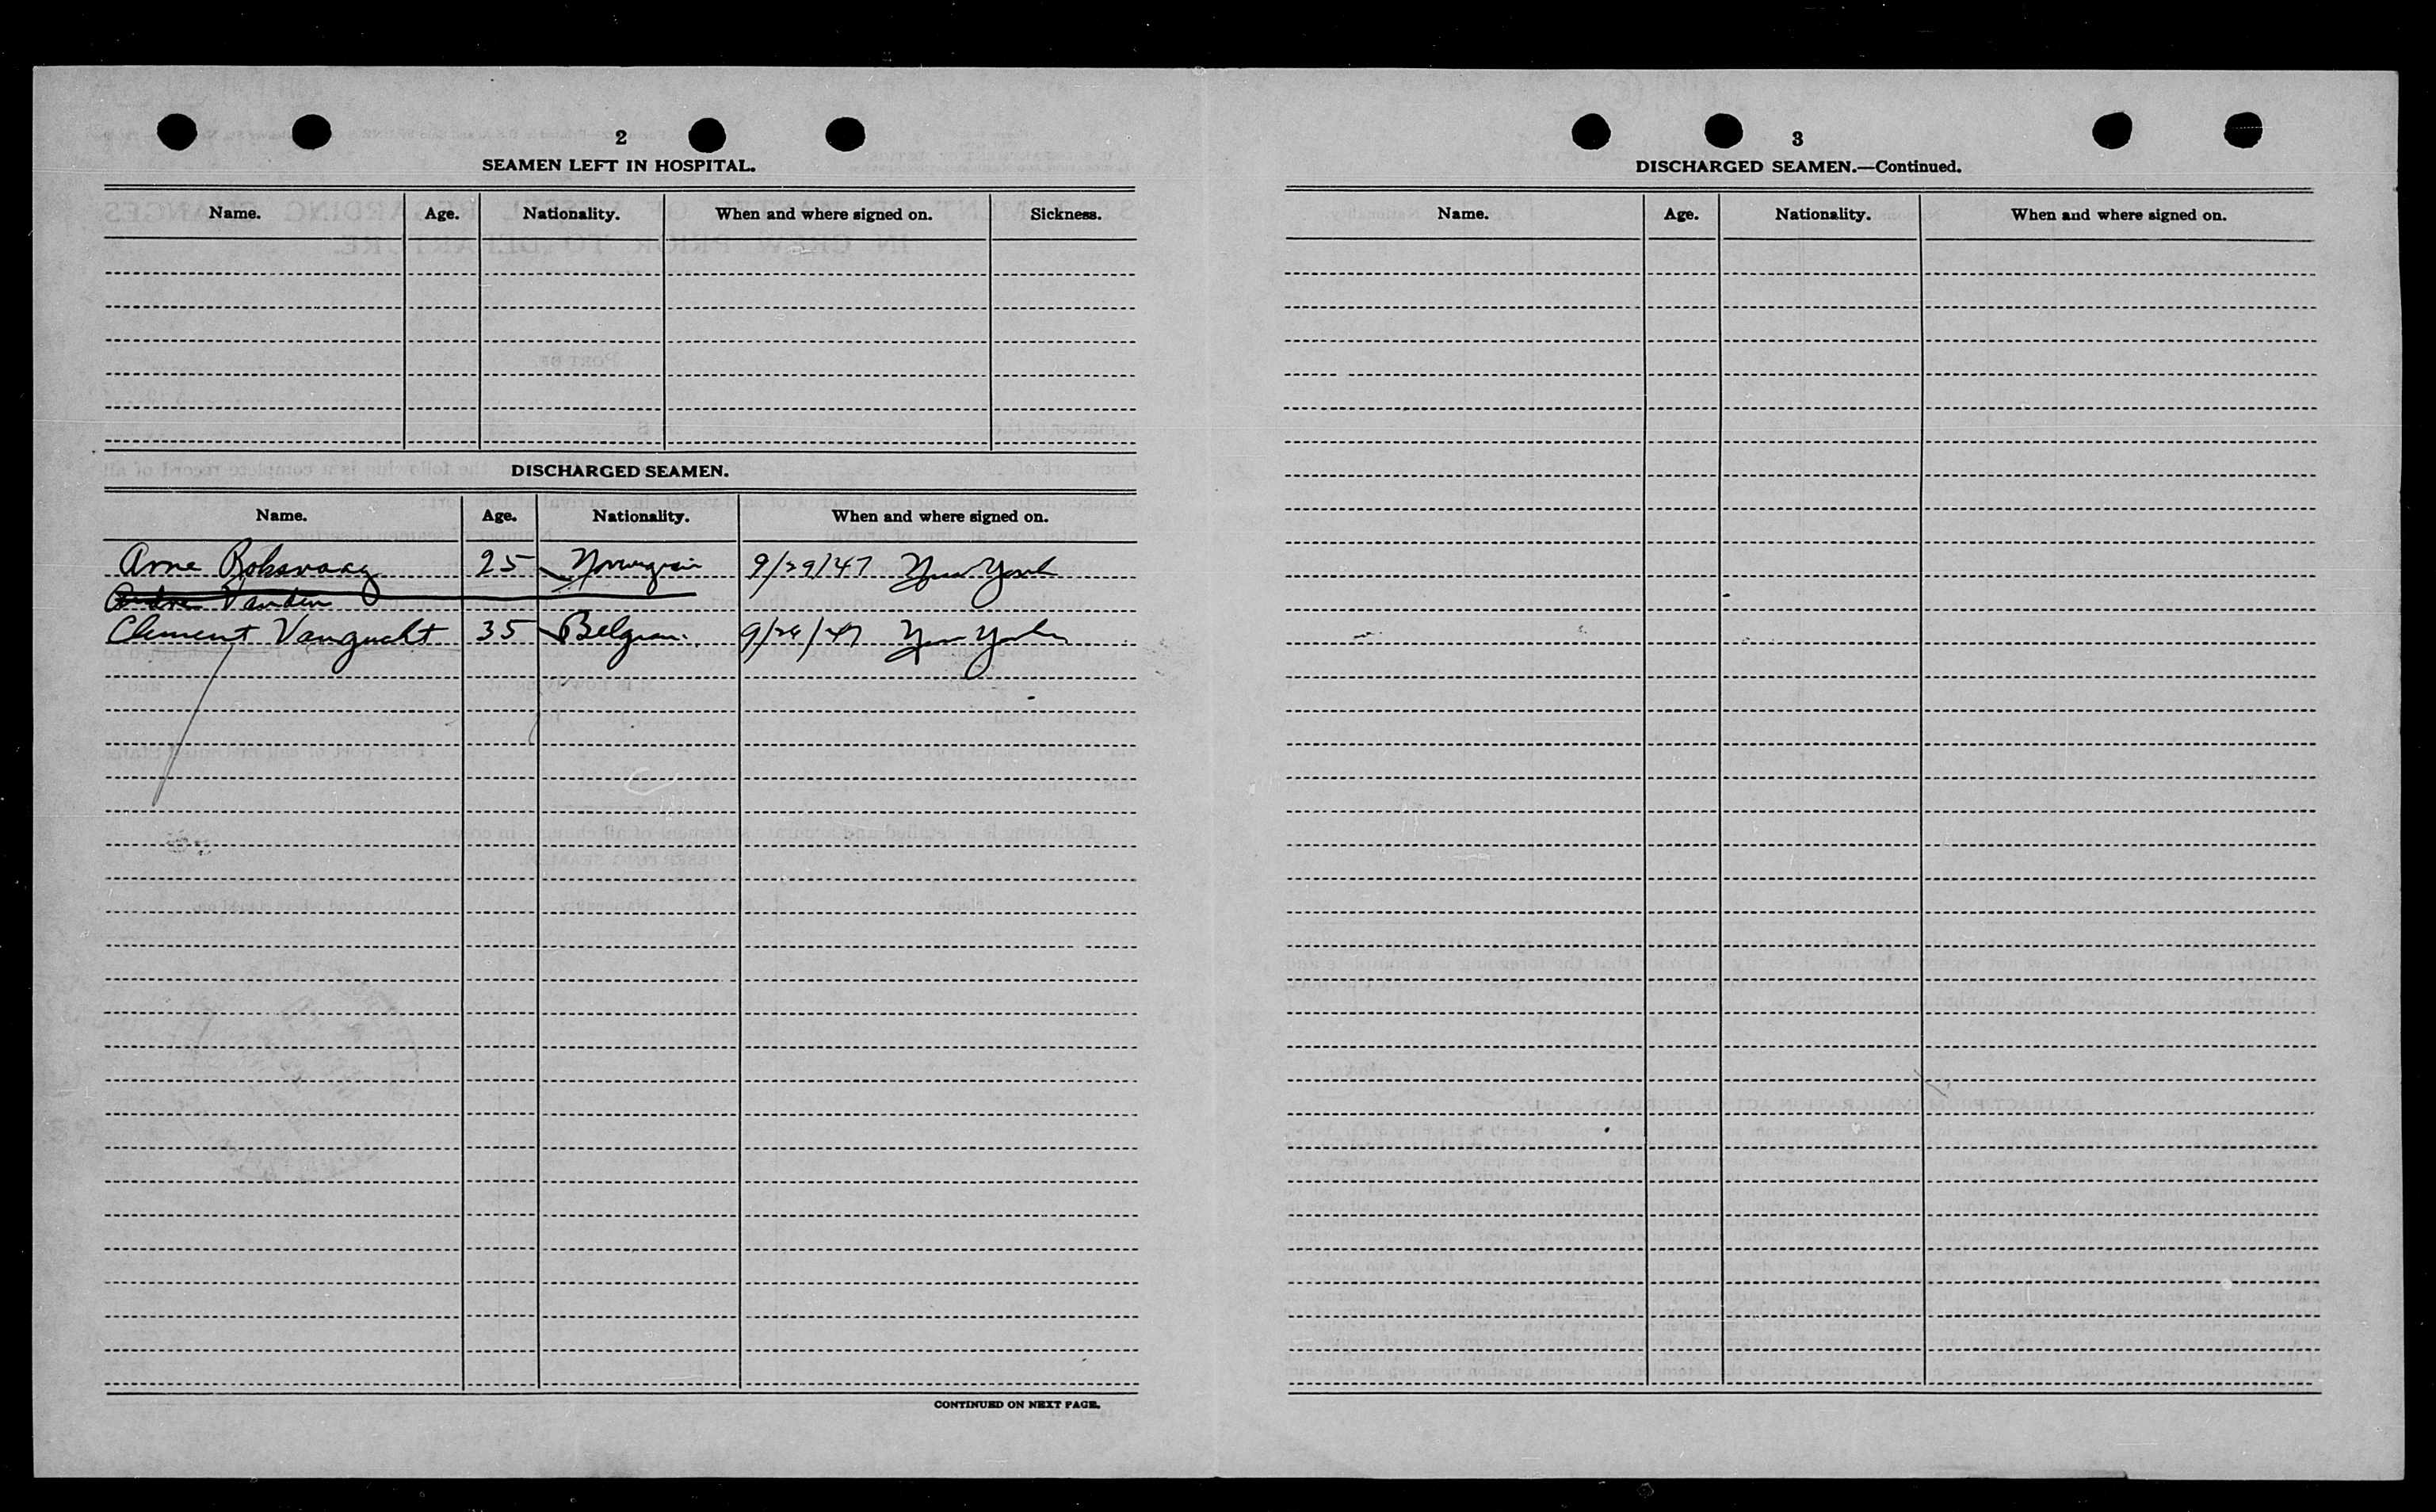 2
SEAMEN LEFT IN HOSPITAL.
Name. Age. Nationality. When and where signed on. Sickness.
DISCHARGED SEAMEN.
Name. Age. Nationality. When and where signed on.
Arne Roksvaag 25 Norwegian 9/29/47 New York
Andre Vanden
Clement Vangucht 35 Belgian. 9/26/47 New York
CONTINUED ON NEXT PAGE.
3
DISCHARGED SEAMEN.—Continued.
Name. Age. Nationality. When and where signed on.